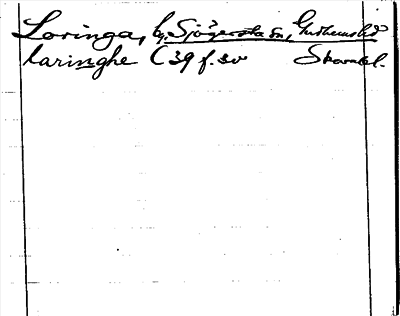 Loringa, by, Sjögersta sn, Gudhems hd
laringhe C39 f. 30 Skarab. l.